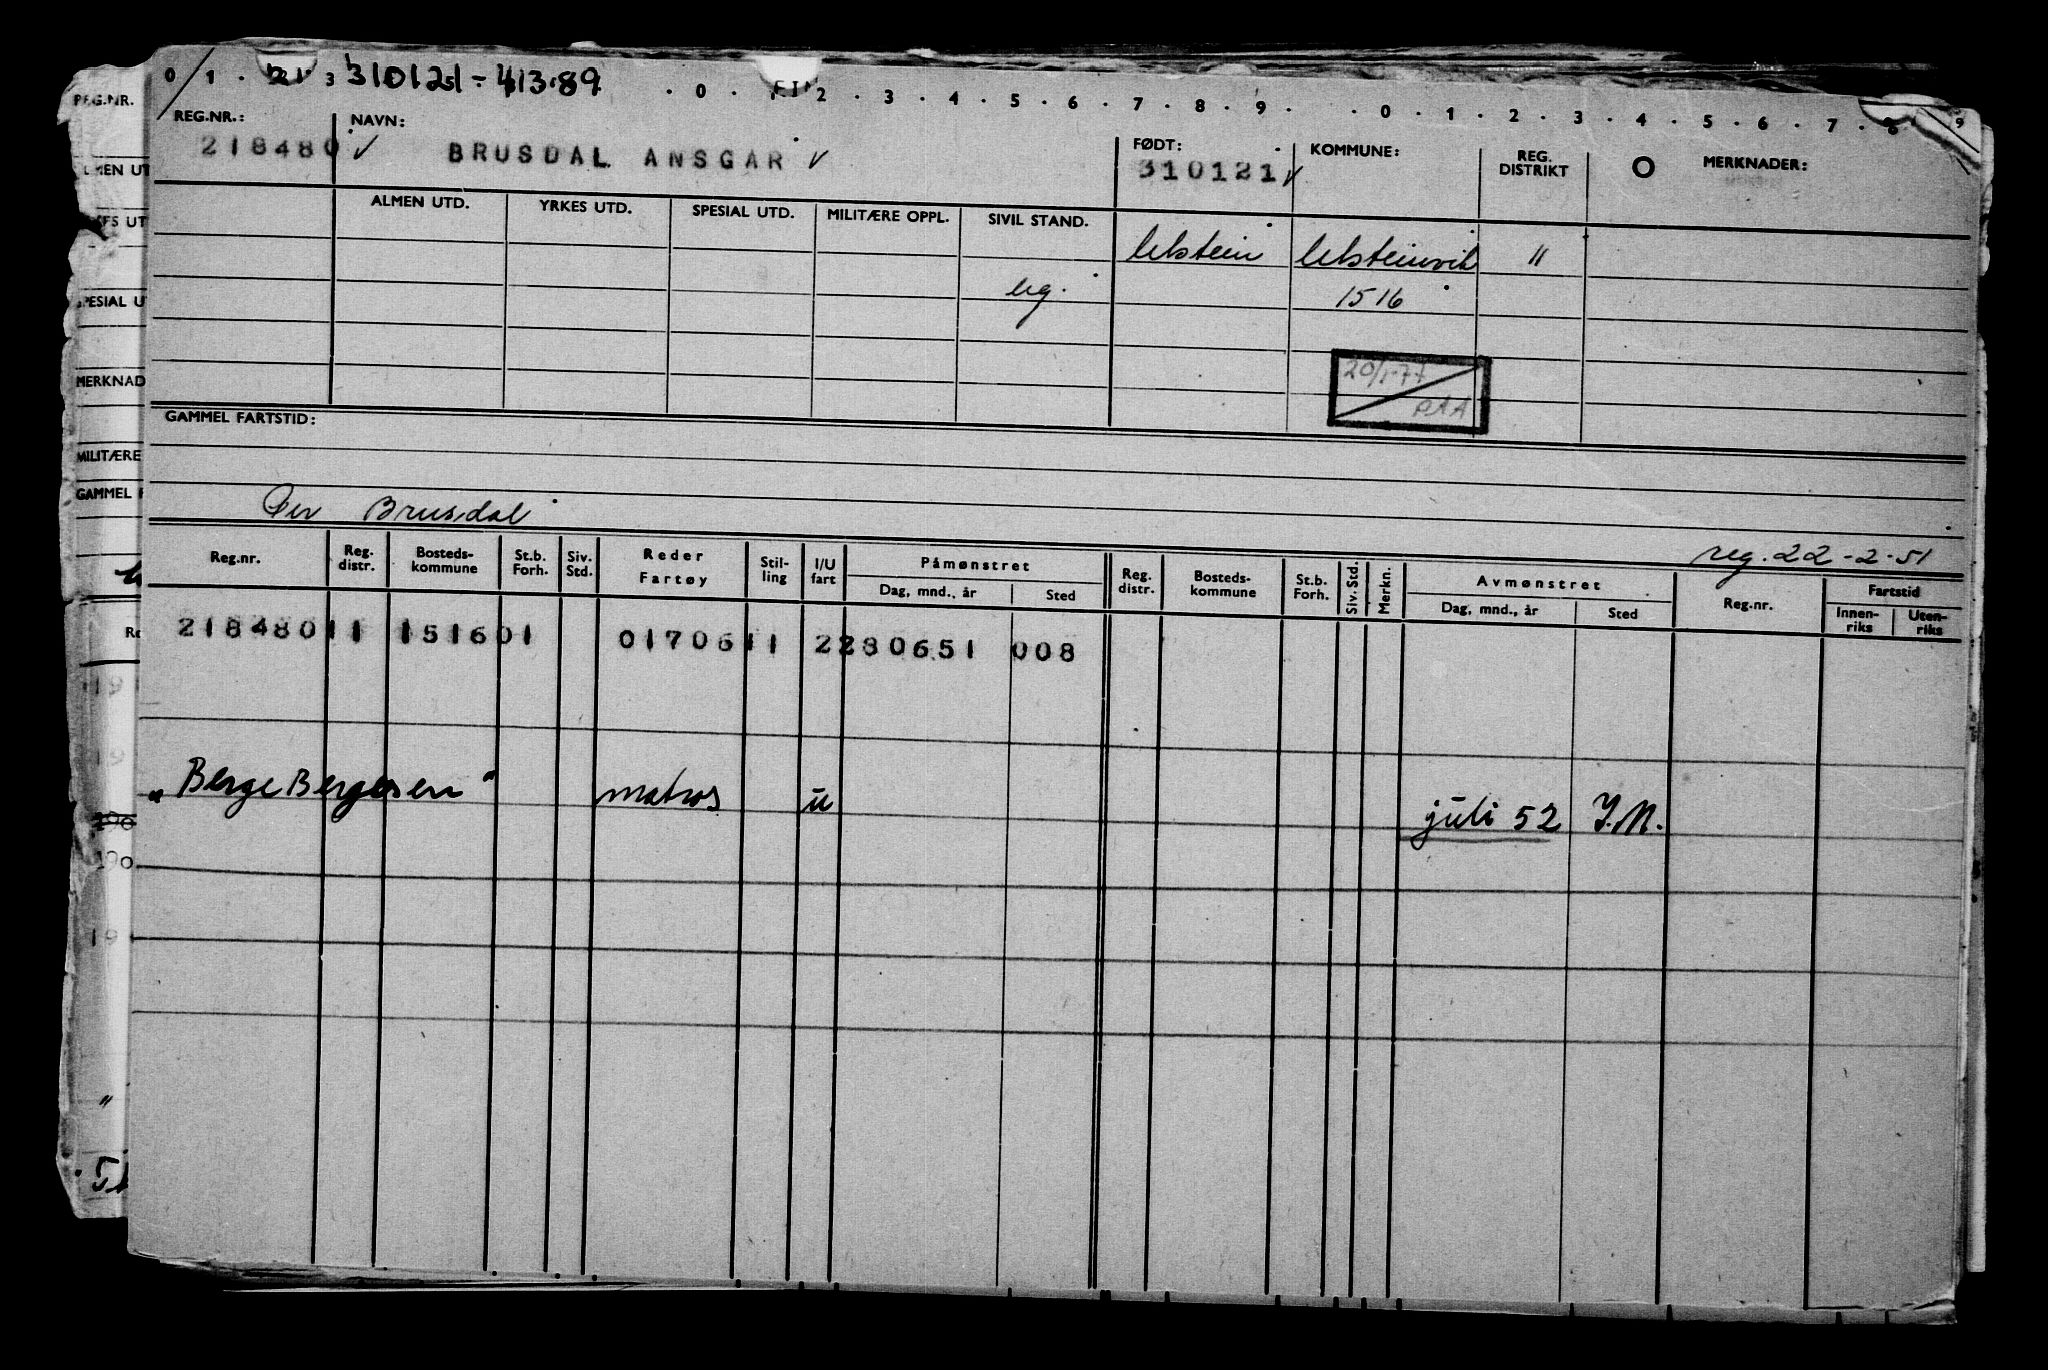 0 1 · 2 3 310121 - 413.89 · 0 · 1 2 · 3 · 4 · 5 · 6 · 7 · 8 · 9 · · 0 · 1 · 2 · 3 · 4 · 5 · 6 · 7 · 8 · 9
REG.NR.: NAVN: FØDT: KOMMUNE: REG. DISTRIKT O MERKNADER:
218480 ✓ BRUSDAL ANSGAR ✓ 310121 ✓
ALMEN UTD. YRKES UTD. SPESIAL UTD. MILITÆRE OPPL. SIVIL STAND.
Ulstein Ulsteinvik 11
ug. 1516
20/1-77
GAMMEL FARTSTID:
Per Brusdal
reg. 22-2-51
Reg.nr. Reg. distr. Bosteds-kommune St.b. Forh. Siv. Std. Reder Fartøy Stil-ling I/U fart Påmønstret Reg. distr. Bosteds-kommune St.b. Forh. Siv. Std. Merkn. Avmønstret Reg.nr. Fartstid
Dag, mnd., år Sted Dag, mnd., år Sted Innen-riks Uten-riks
218480 11 1516 01 01706 11 2 280651 008
"Berge Bergesen" matros u juli 52 I.M.
REG.NR.
SPESIAL U
MERKNAD
MILITÆRE
GAMMEL F